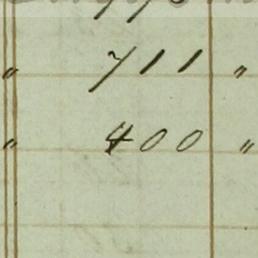 " 711 "
" 400 "